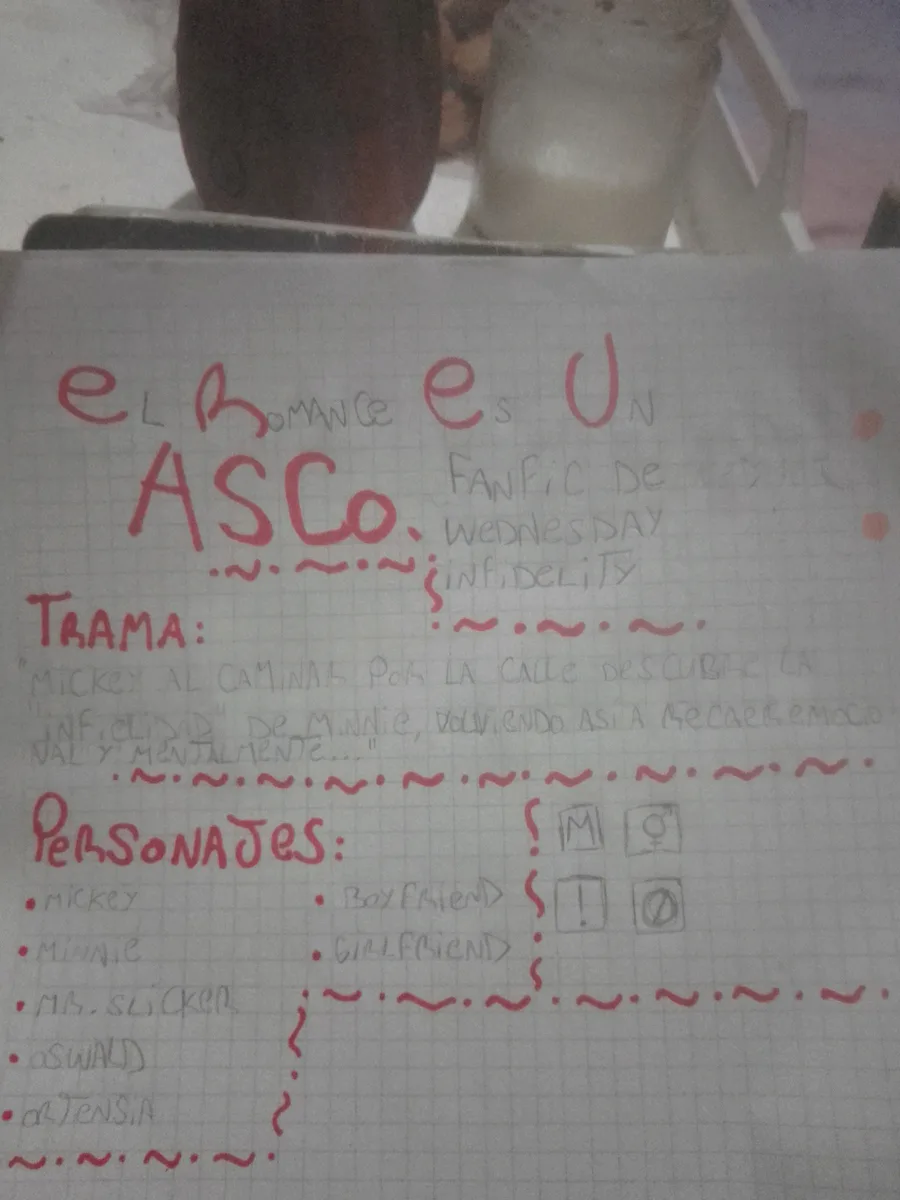 eL RomANCe eS UN
ASCo.
FANFiC De
WeDNeSDAY
iNFiDeLiTY
TRAMA:
"MiCKeY AL CAMiNAR PoR LA CALLe DeSCUBRe LA
"iNFieLiDAD" De MiNNie, VoLVieNDo ASi A ReCAeR emoCio
NAL Y MeNTALMeNTe..."
PeRSoNAJeS:
• MiCKeY
• BoYFRieND
M
• MiNNie
• GiRLFRieND
!
• MR. SLiCKeR
• oSWALD
• oRTeNSiA